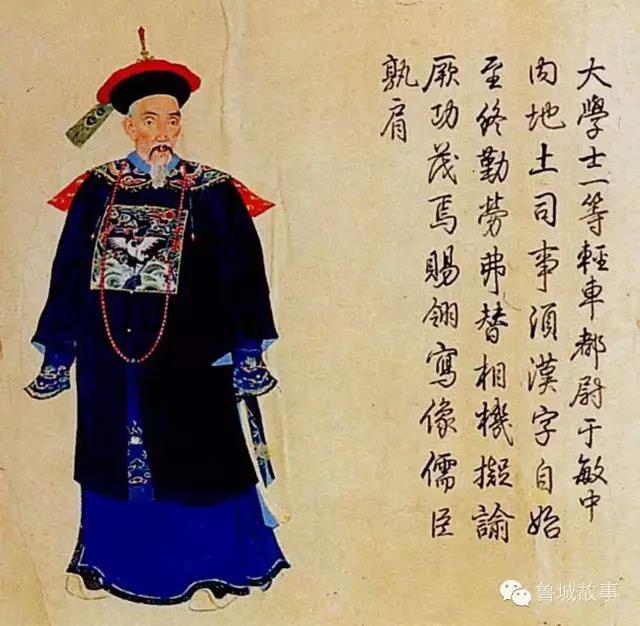 大學士一等輕車都尉于敏中
內地土司事須漢字自始
至終勤勞弗替相機擬諭
厥功茂焉賜翎寫像儒臣
孰肩
鲁城故事